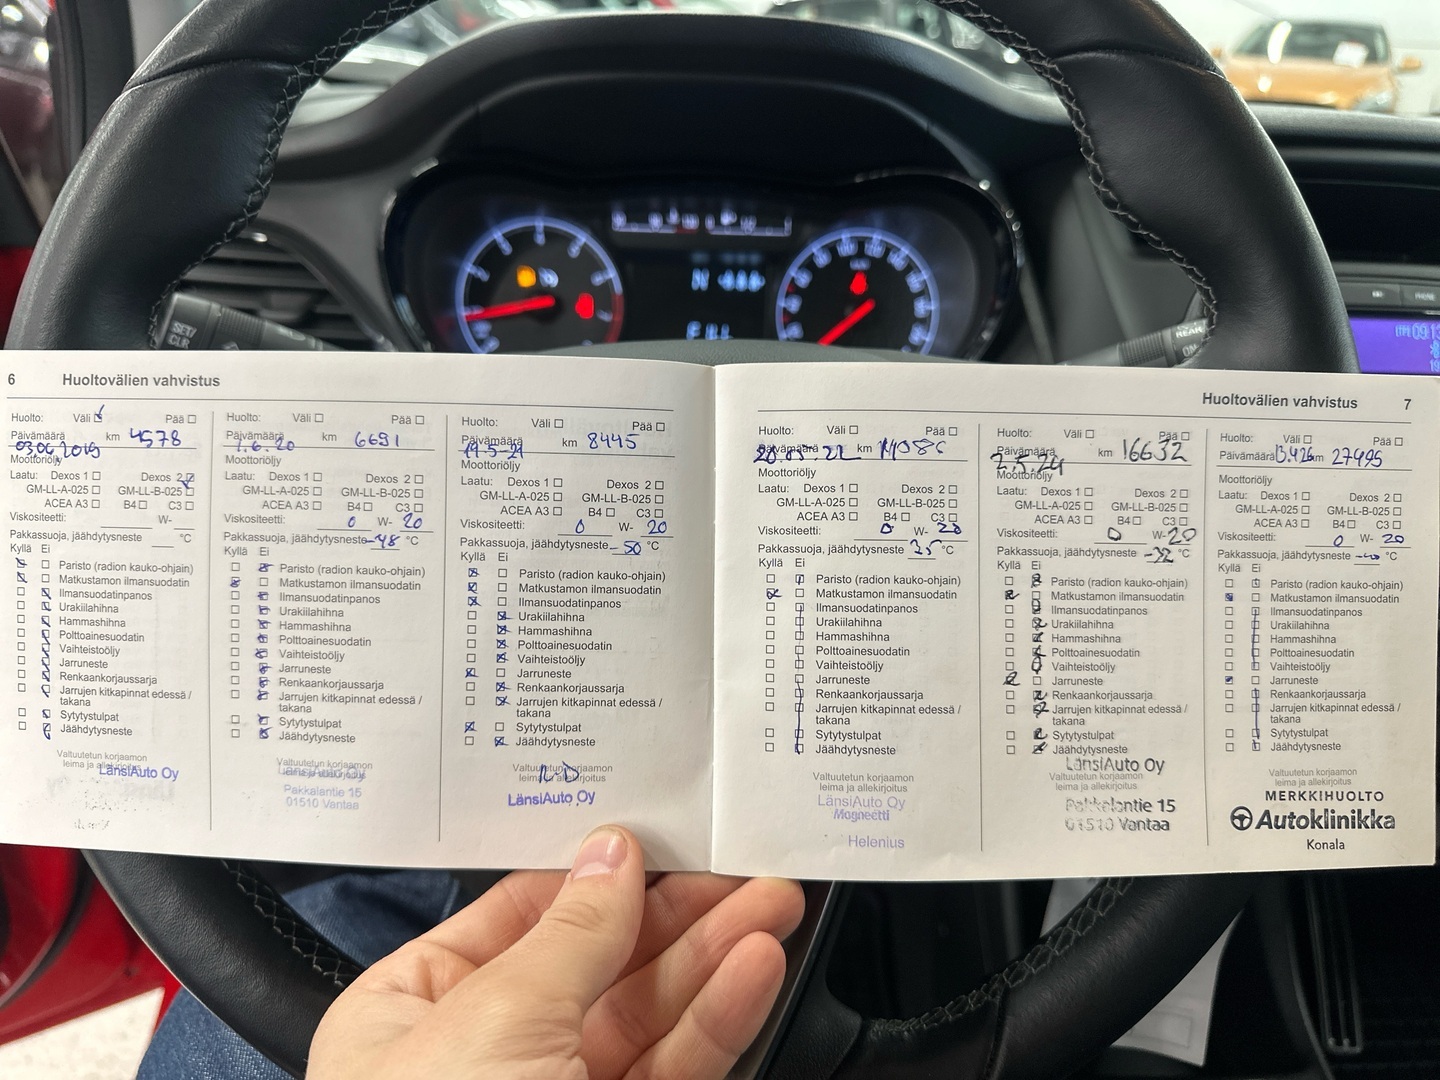 SET/
CLR
REAR
6 Huoltovälien vahvistus
Huolto: Väli Pää
Päivämäärä km 4578
03.06.2019
Moottoriöljy
Laatu: Dexos 1 Dexos 2
GM-LL-A-025 GM-LL-B-025
ACEA A3 B4 C3
Viskositeetti: W-
Pakkassuoja, jäähdytysneste °C
Kyllä Ei
Paristo (radion kauko-ohjain)
Matkustamon ilmansuodatin
Ilmansuodatinpanos
Urakiilahihna
Hammashihna
Polttoainesuodatin
Vaihteistoöljy
Jarruneste
Renkaankorjaussarja
Jarrujen kitkapinnat edessä /
takana
Sytytystulpat
Jäähdytysneste
Valtuutetun korjaamon
leima ja allekirjoitus
LänsiAuto Oy
Huolto: Väli Pää
Päivämäärä km 6691
1.6.20
Moottoriöljy
Laatu: Dexos 1 Dexos 2
GM-LL-A-025 GM-LL-B-025
ACEA A3 B4 C3
Viskositeetti: 0 W- 20
Pakkassuoja, jäähdytysneste -48 °C
Kyllä Ei
Paristo (radion kauko-ohjain)
Matkustamon ilmansuodatin
Ilmansuodatinpanos
Urakiilahihna
Hammashihna
Polttoainesuodatin
Vaihteistoöljy
Jarruneste
Renkaankorjaussarja
Jarrujen kitkapinnat edessä /
takana
Sytytystulpat
Jäähdytysneste
LänsiAuto Oy
Pakkalantie 15
01510 Vantaa
Huolto: Väli Pää
Päivämäärä km 8445
19-5-21
Moottoriöljy
Laatu: Dexos 1 Dexos 2
GM-LL-A-025 GM-LL-B-025
ACEA A3 B4 C3
Viskositeetti: 0 W- 20
Pakkassuoja, jäähdytysneste -50 °C
Kyllä Ei
Paristo (radion kauko-ohjain)
Matkustamon ilmansuodatin
Ilmansuodatinpanos
Urakiilahihna
Hammashihna
Polttoainesuodatin
Vaihteistoöljy
Jarruneste
Renkaankorjaussarja
Jarrujen kitkapinnat edessä /
takana
Sytytystulpat
Jäähdytysneste
Valtuutetun korjaamon
leima ja allekirjoitus
LänsiAuto Oy
Huoltovälien vahvistus 7
Huolto: Väli Pää
Päivämäärä km
Moottoriöljy
Laatu: Dexos 1 Dexos 2
GM-LL-A-025 GM-LL-B-025
ACEA A3 B4 C3
Viskositeetti: 0 W- 20
Pakkassuoja, jäähdytysneste 35 °C
Kyllä Ei
Paristo (radion kauko-ohjain)
Matkustamon ilmansuodatin
Ilmansuodatinpanos
Urakiilahihna
Hammashihna
Polttoainesuodatin
Vaihteistoöljy
Jarruneste
Renkaankorjaussarja
Jarrujen kitkapinnat edessä /
takana
Sytytystulpat
Jäähdytysneste
Valtuutetun korjaamon
leima ja allekirjoitus
LänsiAuto Oy
Magneetti
Helenius
Huolto: Väli Pää
Päivämäärä km 16632
2.5.24
Moottoriöljy
Laatu: Dexos 1 Dexos 2
GM-LL-A-025 GM-LL-B-025
ACEA A3 B4 C3
Viskositeetti: 0 W- 20
Pakkassuoja, jäähdytysneste -32 °C
Kyllä Ei
Paristo (radion kauko-ohjain)
Matkustamon ilmansuodatin
Ilmansuodatinpanos
Urakiilahihna
Hammashihna
Polttoainesuodatin
Vaihteistoöljy
Jarruneste
Renkaankorjaussarja
Jarrujen kitkapinnat edessä /
takana
Sytytystulpat
Jäähdytysneste
LänsiAuto Oy
Valtuutetun korjaamon
leima ja allekirjoitus
Pakkalantie 15
01510 Vantaa
Huolto: Väli Pää
Päivämäärä km 27495
Moottoriöljy
Laatu: Dexos 1 Dexos 2
GM-LL-A-025 GM-LL-B-025
ACEA A3 B4 C3
Viskositeetti: 0 W- 20
Pakkassuoja, jäähdytysneste °C
Kyllä Ei
Paristo (radion kauko-ohjain)
Matkustamon ilmansuodatin
Ilmansuodatinpanos
Urakiilahihna
Hammashihna
Polttoainesuodatin
Vaihteistoöljy
Jarruneste
Renkaankorjaussarja
Jarrujen kitkapinnat edessä /
takana
Sytytystulpat
Jäähdytysneste
Valtuutetun korjaamon
leima ja allekirjoitus
MERKKIHUOLTO
Autoklinikka
Konala